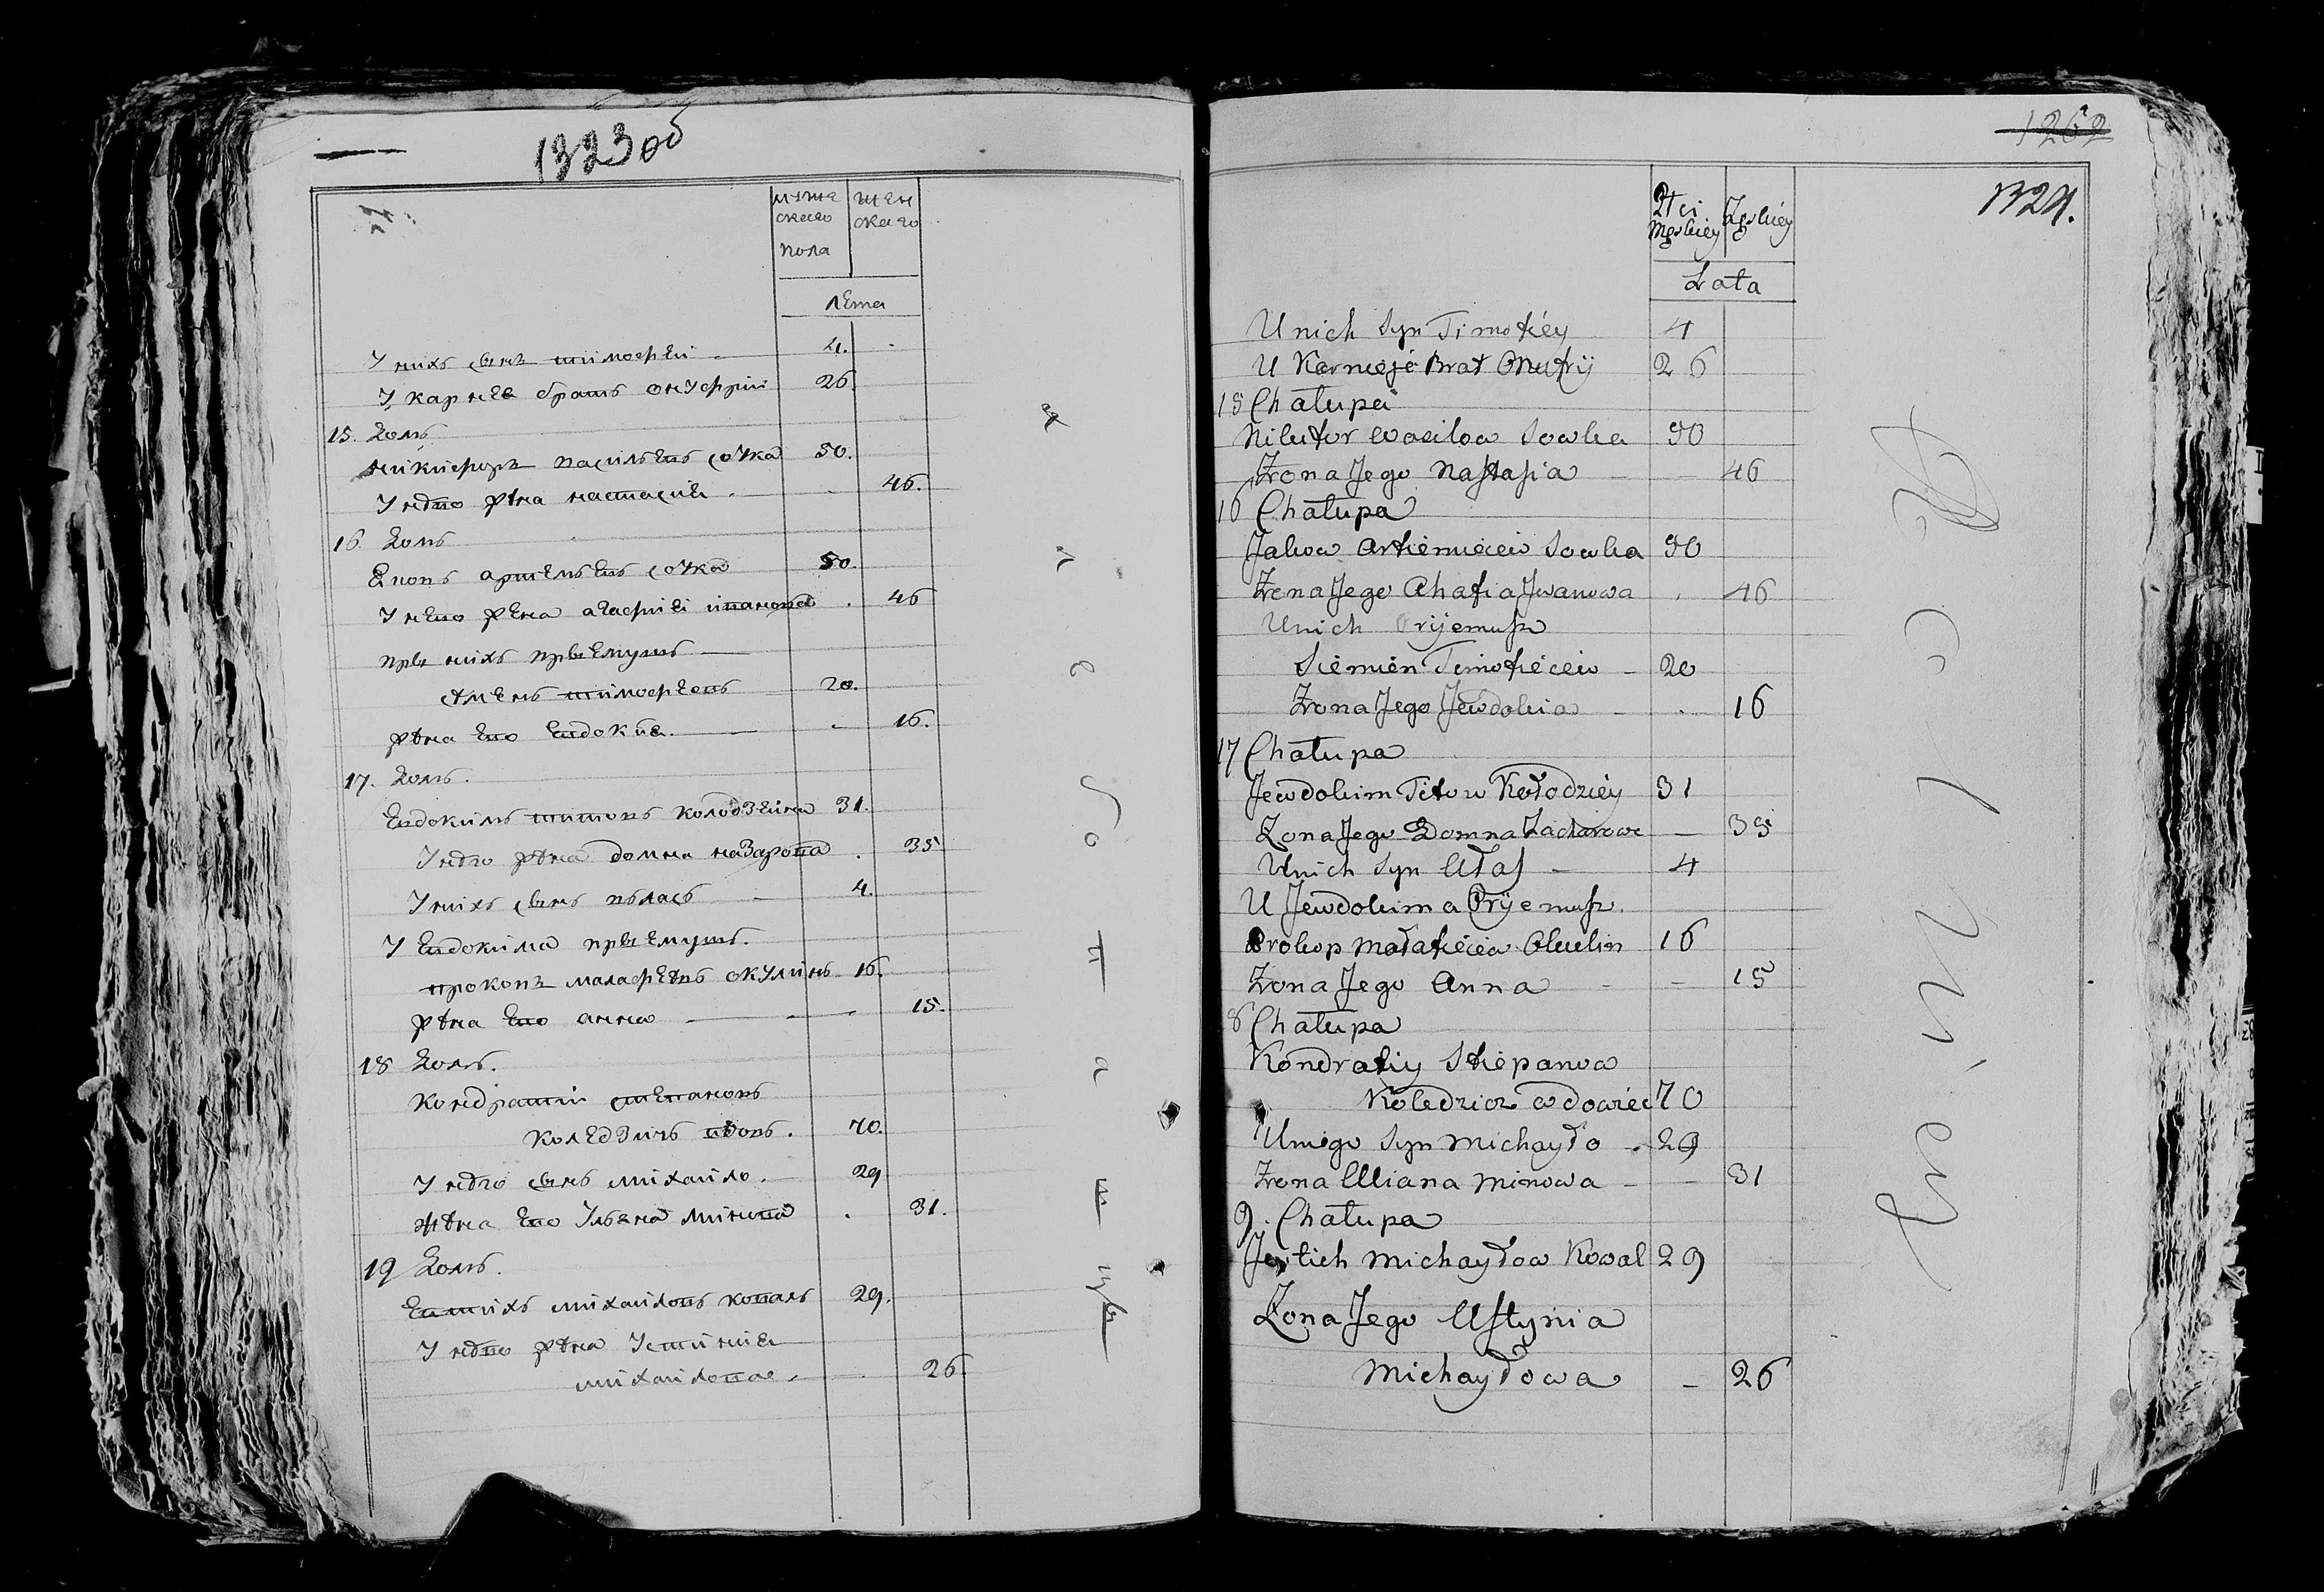 1323 об
мужескаго
женскаго
пола
лета
У нихъ сынъ тимофей 4.
У карнея братъ онуфрий 26
15. Домъ
никифоръ васильевъ совка 50.
У него жена настасия 46.
16. Домъ
Яковъ артемьевъ совка 50.
У него жена агафия иванова 46
при нихъ приемышъ
семенъ тимофеевъ 20.
жена его евдокия 16.
17. Домъ.
Евдокимъ титовъ колодзейна 31.
У него жена домна назарова 35
У нихъ сынъ власъ 4.
У Евдокима приемышъ.
прокопъ малафеевъ окулинъ 16.
жена его анна 15.
18 Домъ.
Кондратий степановъ
коледзичъ вдовъ. 70.
У него сынъ михайло. 29
жена его Ульяна минова 31.
19 Домъ.
Евтихъ михайловъ коваль 29.
У него жена Устиния
михайлова. 26.
1262
1324.
Płci
Męskiéy
Żeńskiéy
Lata
U nich Syn Timofiéy 4
U Karnieja Brat Onufrÿ 26
15 Chałupa
Nikifor Wasilow Sowka 50
Żona Jego Nastasia 46
16 Chałupa
Jakow Artiemiéiew Sowka 50
Żona Jego Ahafia Jwanowa 46
U nich Pryiemysz
Siemién Timofiéiew 20
Żona Jego Jewdokia 16
17 Chałupa
Jewdokim Titow Kołodziéy 31
Żona Jego Domna Zacharowa 35
U nich Syn Ułas 4
U Jewdokima Pryiemysz.
Prokop Małafiéiew Okulin 16
Żona Jego Anna 15
8 Chałupa
Kondratiy Stiepanow
Koledzicz wdowiéc 70
U niego Syn Michayło 29
Żona Uliana Minowa 31
9. Chałupa
Jewtich Michayłow Kowal 29
Żona Jego Ustynia
Michayłowa 26